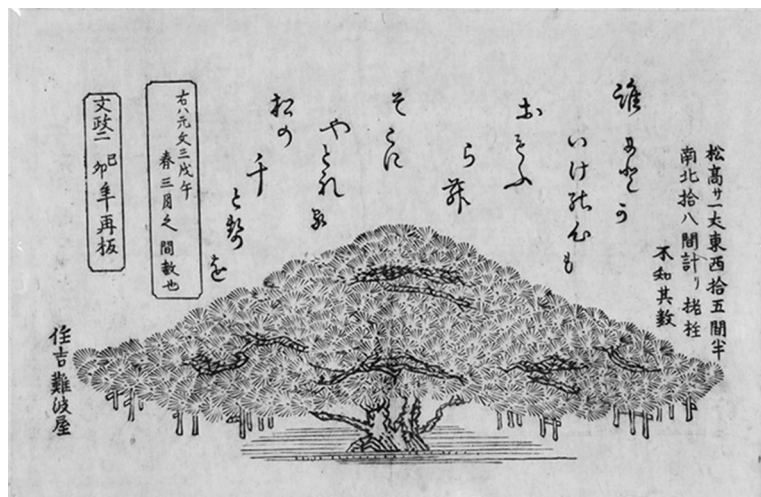 松高サ一丈東西拾五間半
南北拾八間計リ
不知其数
誰
も
おもふ
ら舞
そこに
やとれる
松の
千
とせを
右ハ元文三戊午
春三月之間数也
文政二己卯年再板
住吉難波屋